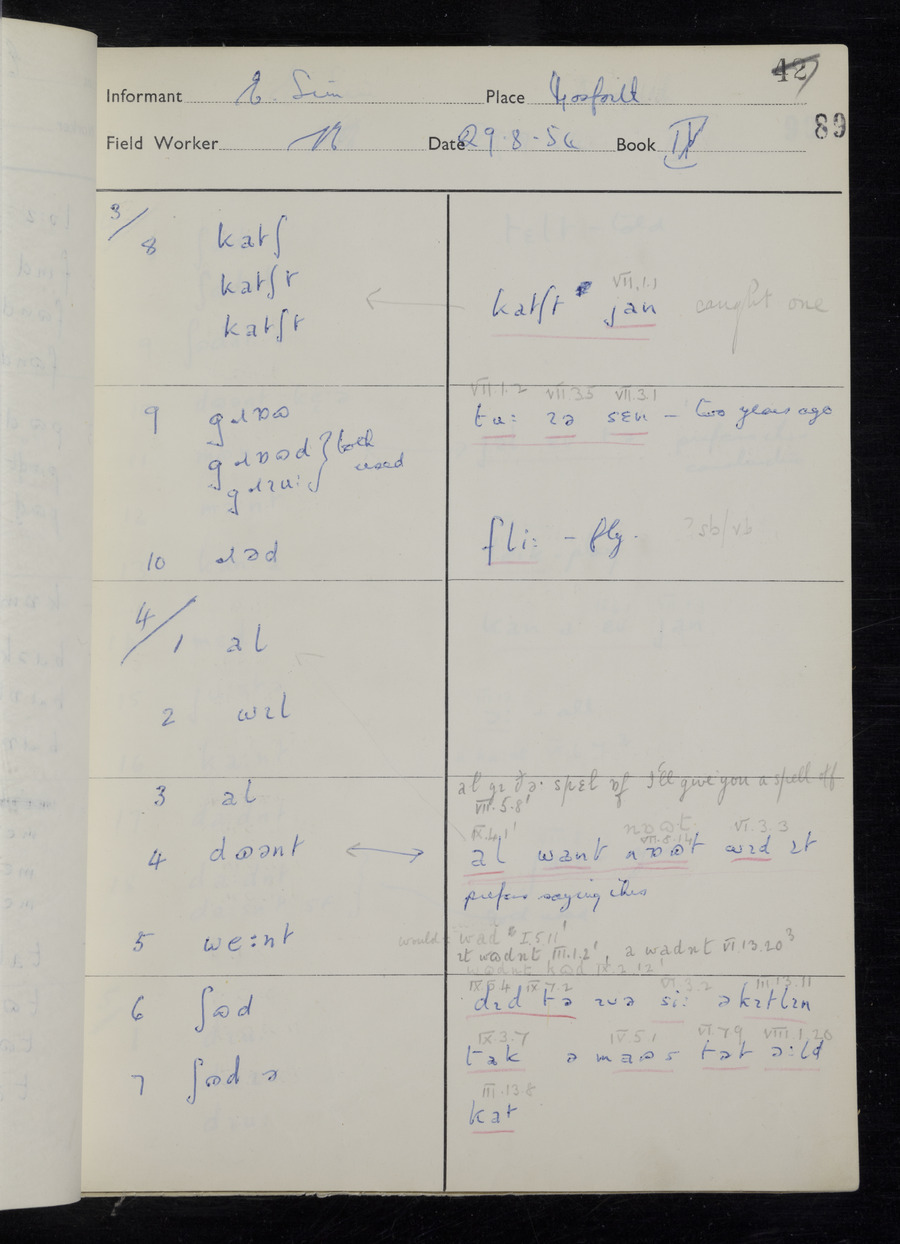 42
Informant E. Sim Place Gosforth
89
Field Worker Date 29.8.54 Book IV
3/8 katʃ
katʃt
katʃt
VII.1.1
katʃt jan caught one
9 gɹɒʊ
gɹɒʊd } both used
gɹɪuː
VII.1.2 VII.3.5 VII.3.1
tuː ɪə sɛn — two years ago
10 ɹəd
fliː – fly. ?sb/vb
4/1 al
2 wɪl
3 al
al gɪ ðə· spɛl ɒf I'll give you a spell off
VII.5.8
4 dʊənt
IX.4.1 nɒʊt VII.8.14 VI.3.3
al want nɒʊt wɪd ɪt
prefers saying this
5 weːnt
would: wad I.5.11
ɪt wadnt III.1.2, a wadnt VI.13.20
wadnt IX.2.12
6 ʃʊd
IX.5.4 IX.7.2 VI.3.2 III.13.11
dɪd tə ɪvə siː əkɪtlɪn
IX.3.7 IV.5.1 VI.7.9 VIII.1.20
tak ə maʊs tat əːld
7 ʃʊd ə
III.13.8
kat